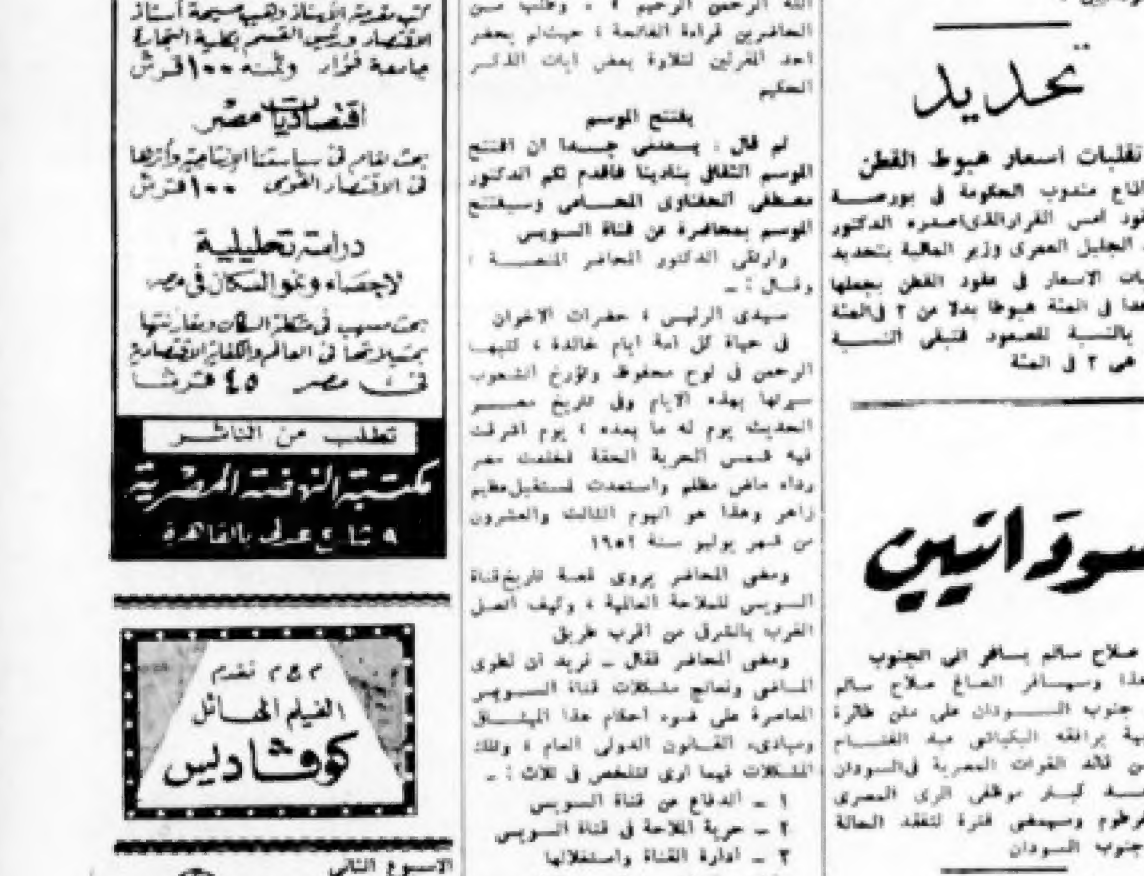 تحديد
تقلبات اسعار هبوط القطن
مندوب الحكومة في بورصة
امس القرار الذي اصدره الدكتور
الجليل العمري وزير المالية بتحديد
الاسعار في عقود القطن بجعلها
في المئة هبوطا بدلا من ٢ في المئة
بالنسبة للصعود فتبقى النسبة
هي ٢ في المئة
صلاح سالم يسافر الى الجنوب
وسيسافر الصاغ صلاح سالم
جنوب السودان على متن طائرة
يرافقه البكباشي عبد
قائد القوات المصرية في السودان
موظفي الري المصري
وسيمضي فترة لتفقد الحالة
جنوب السودان
الله الرحمن الرحيم » . وطلب من
الحاضرين قراءة الفاتحة ، حيث لم يحضر
احد المقرئين لتلاوة بعض ايات الذكر
الحكيم
يفتتح الموسم
ثم قال : يسعدني جدا ان افتتح
الموسم الثقافي بنادينا فاقدم لكم الدكتور
مصطفى الحفناوي المحامي وسيفتتح
الموسم بمحاضرة عن قناة السويس
وارتقى الدكتور المحاضر المنصة ،
وقال : ـ
سيدي الرئيس ، حضرات الاخوان
في حياة كل امة ايام خالدة ، كتبها
الرحمن في لوح محفوظ وتؤرخ الشعوب
سيرتها بهذه الايام وفي تاريخ مصر
الحديث يوم له ما بعده ، يوم اشرقت
فيه شمس الحرية الحقة فخلعت مصر
رداء ماض مظلم واستعدت لمستقبل عظيم
زاهر وهذا هو اليوم الثالث والعشرون
من شهر يوليو سنة ١٩٥٢
ومضى المحاضر يروي قصة تاريخ قناة
السويس للملاحة العالمية ، وكيف اتصل
الغرب بالشرق من اقرب طريق
ومضى المحاضر فقال ـ نريد ان نطوي
الماضي ونعالج مشكلات قناة السويس
المعاصرة على ضوء احكام هذا الميثاق
ومبادىء القانون الدولي العام ، وتلك
المشكلات فيما ارى تتلخص في ثلاث : ـ
١ ـ الدفاع عن قناة السويس
٢ ـ حرية الملاحة في قناة السويس
٣ ـ ادارة القناة واستغلالها
أستاذ
الاقتصاد ورئيس القسم بكلية التجارة
جامعة فؤاد وثمنه ١٠٠ قرش
اقتصاديات مصر
بحث في سياستنا الإنتاجية وأثرها
في الاقتصاد القومي ١٠٠ قرش
دراسة تحليلية
لاحصاء ونمو السكان في مصر
بحث مسهب في مشكلة السكان ومقارنتها
بمثيلاتها في العالم والكفاية الاقتصادية
في مصر ٤٥ قرشا
تطلب من الناشر
مكتبة النهضة المصرية
٩ شارع عدلي بالقاهرة
م ج م تقدم
الفيلم الهائل
كوفاديس
الاسبوع الثاني